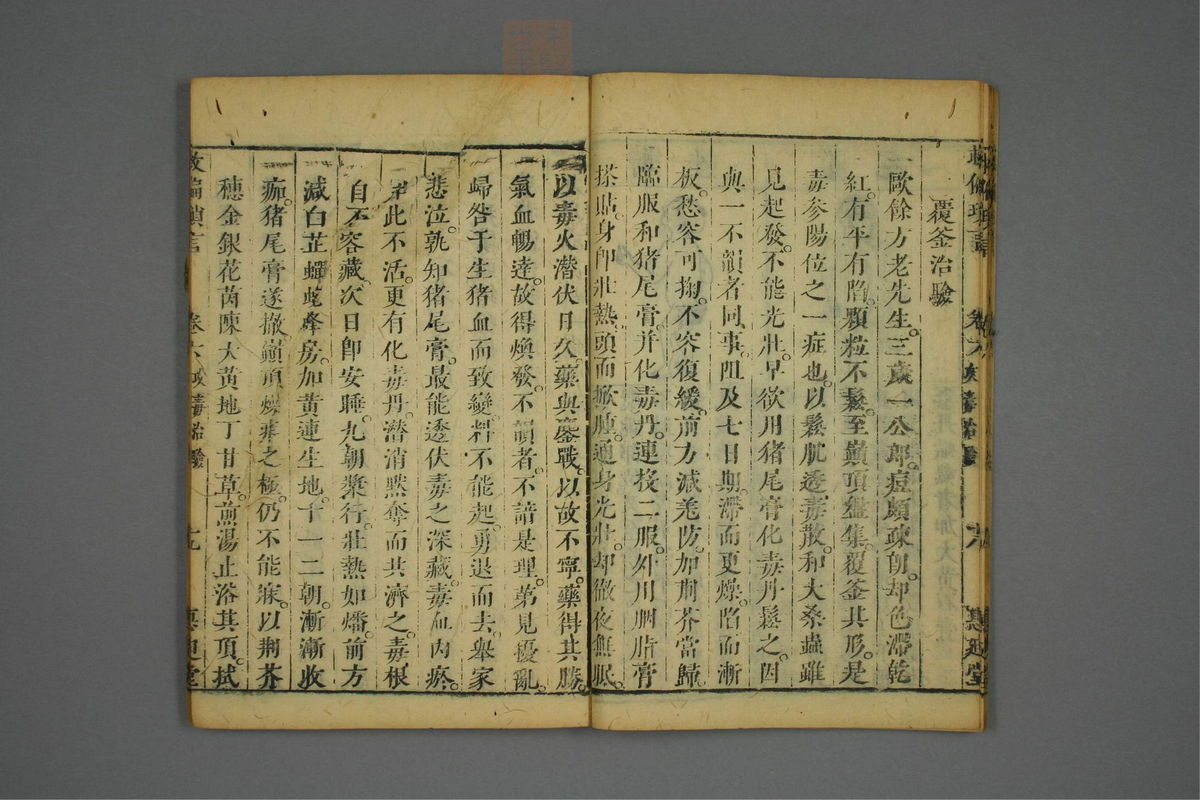 覆釜治驗
歐餘方老先生。三歲一公郎。痘頗疎朗。却色滯乾
紅。有平有陷。顆粒不鬆。至巔頂盤集。覆釜其形。是
毒參陽位之一症也。以鬆肌透毒散。和大桑蟲。雖
見起發。不能光壯。早欲用猪尾膏化毒丹鬆之。因
與一不韻者同事。阻及七日期。滯而更燥。陷而漸
板。愁容可掬。不容復緩。前方減羌防。加荊芥當歸。
臨服和猪尾膏。并化毒丹。連投二服。外用胭脂膏
搽貼。身即壯熱。頭面掀腫。通身光壯。却徹夜無眠。
以毒火潛伏日久。藥與鏖戰。以故不寧。藥得其勝。
氣血暢達。故得煥發。不韻者。不諳是理。第見擾亂。
歸咎于生猪血而致變。料不能起。勇退而去。舉家
悲泣。孰知猪尾膏。最能透伏毒之深藏。毒血內瘀。
非此不活。更有化毒丹。潛消黙奪而共濟之。毒根
自不容藏。次日即安睡。九朝漿行。壯熱如燔。前方
減白芷蟬蛻蜂房。加黃連生地。十一二朝。漸漸收
痂。猪尾膏遂撤。巔頂燥痒之極。仍不能寐。以荆芥
穗金銀花茵陳大黃地丁甘草。煎湯止浴其頂。拭
救偏瑣言
卷六
攻毒治驗
十九
惠迪堂